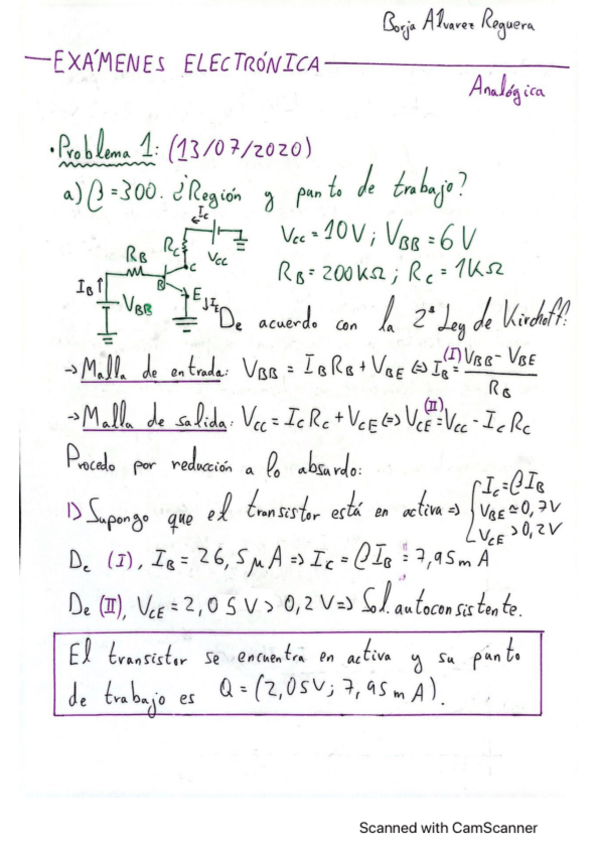 Borja Alvarez Reguera
EXÁMENES ELECTRÓNICA
Analógica
·Problema 1: (13/07/2020)
a) β=300. ¿Región y punto de trabajo?
Vcc = 10V ; VBB = 6V
RB = 200KΩ ; Rc = 1KΩ
Ic
Rc
Vcc
RB
C
B
IB
E
IE
VBB
De acuerdo con la 2ª Ley de Kirchoff:
→ Malla de entrada: VBB = IB RB + VBE ⇔ IB (I)= (VBB - VBE)/RB
→ Malla de salida: Vcc = Ic Rc + VCE ⇔ VCE (II)= Vcc - Ic Rc
Procedo por reducción a lo absurdo:
1) Supongo que el transistor está en activa ⇒ { Ic = βIB
VBE ≃ 0,7V
VCE > 0,2V
De (I), IB = 26,5 μA ⇒ Ic = βIB = 7,95 mA
De (II), VCE = 2,05V > 0,2V ⇒ Sol. autoconsistente.
El transistor se encuentra en activa y su punto
de trabajo es Q = (2,05V; 7,95 mA).
Scanned with CamScanner